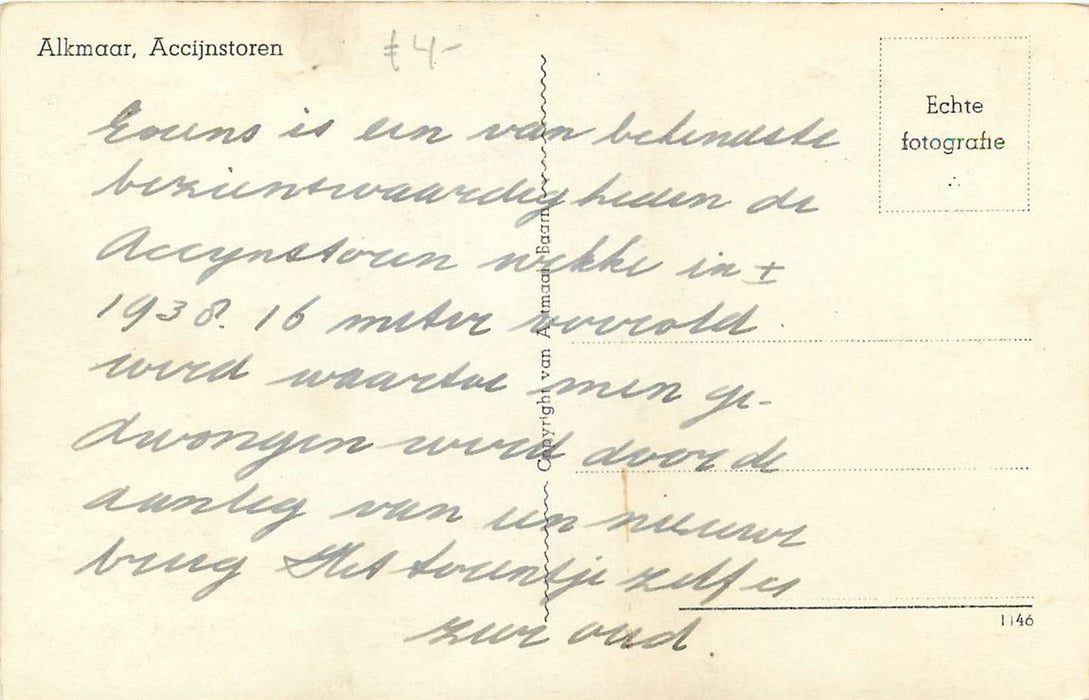 Alkmaar, Accijnstoren
€ 4-
Echte
fotografie
Evens is een van bekendste
bezienswaardigheden de
Accynstoren welke in ±
1938. 16 meter verrold
werd waartoe men ge-
dwongen werd door de
aanleg van een nieuwe
brug Het torentje zelf is
zeer oud.
Copyright van Altmaar, Baarn
1146